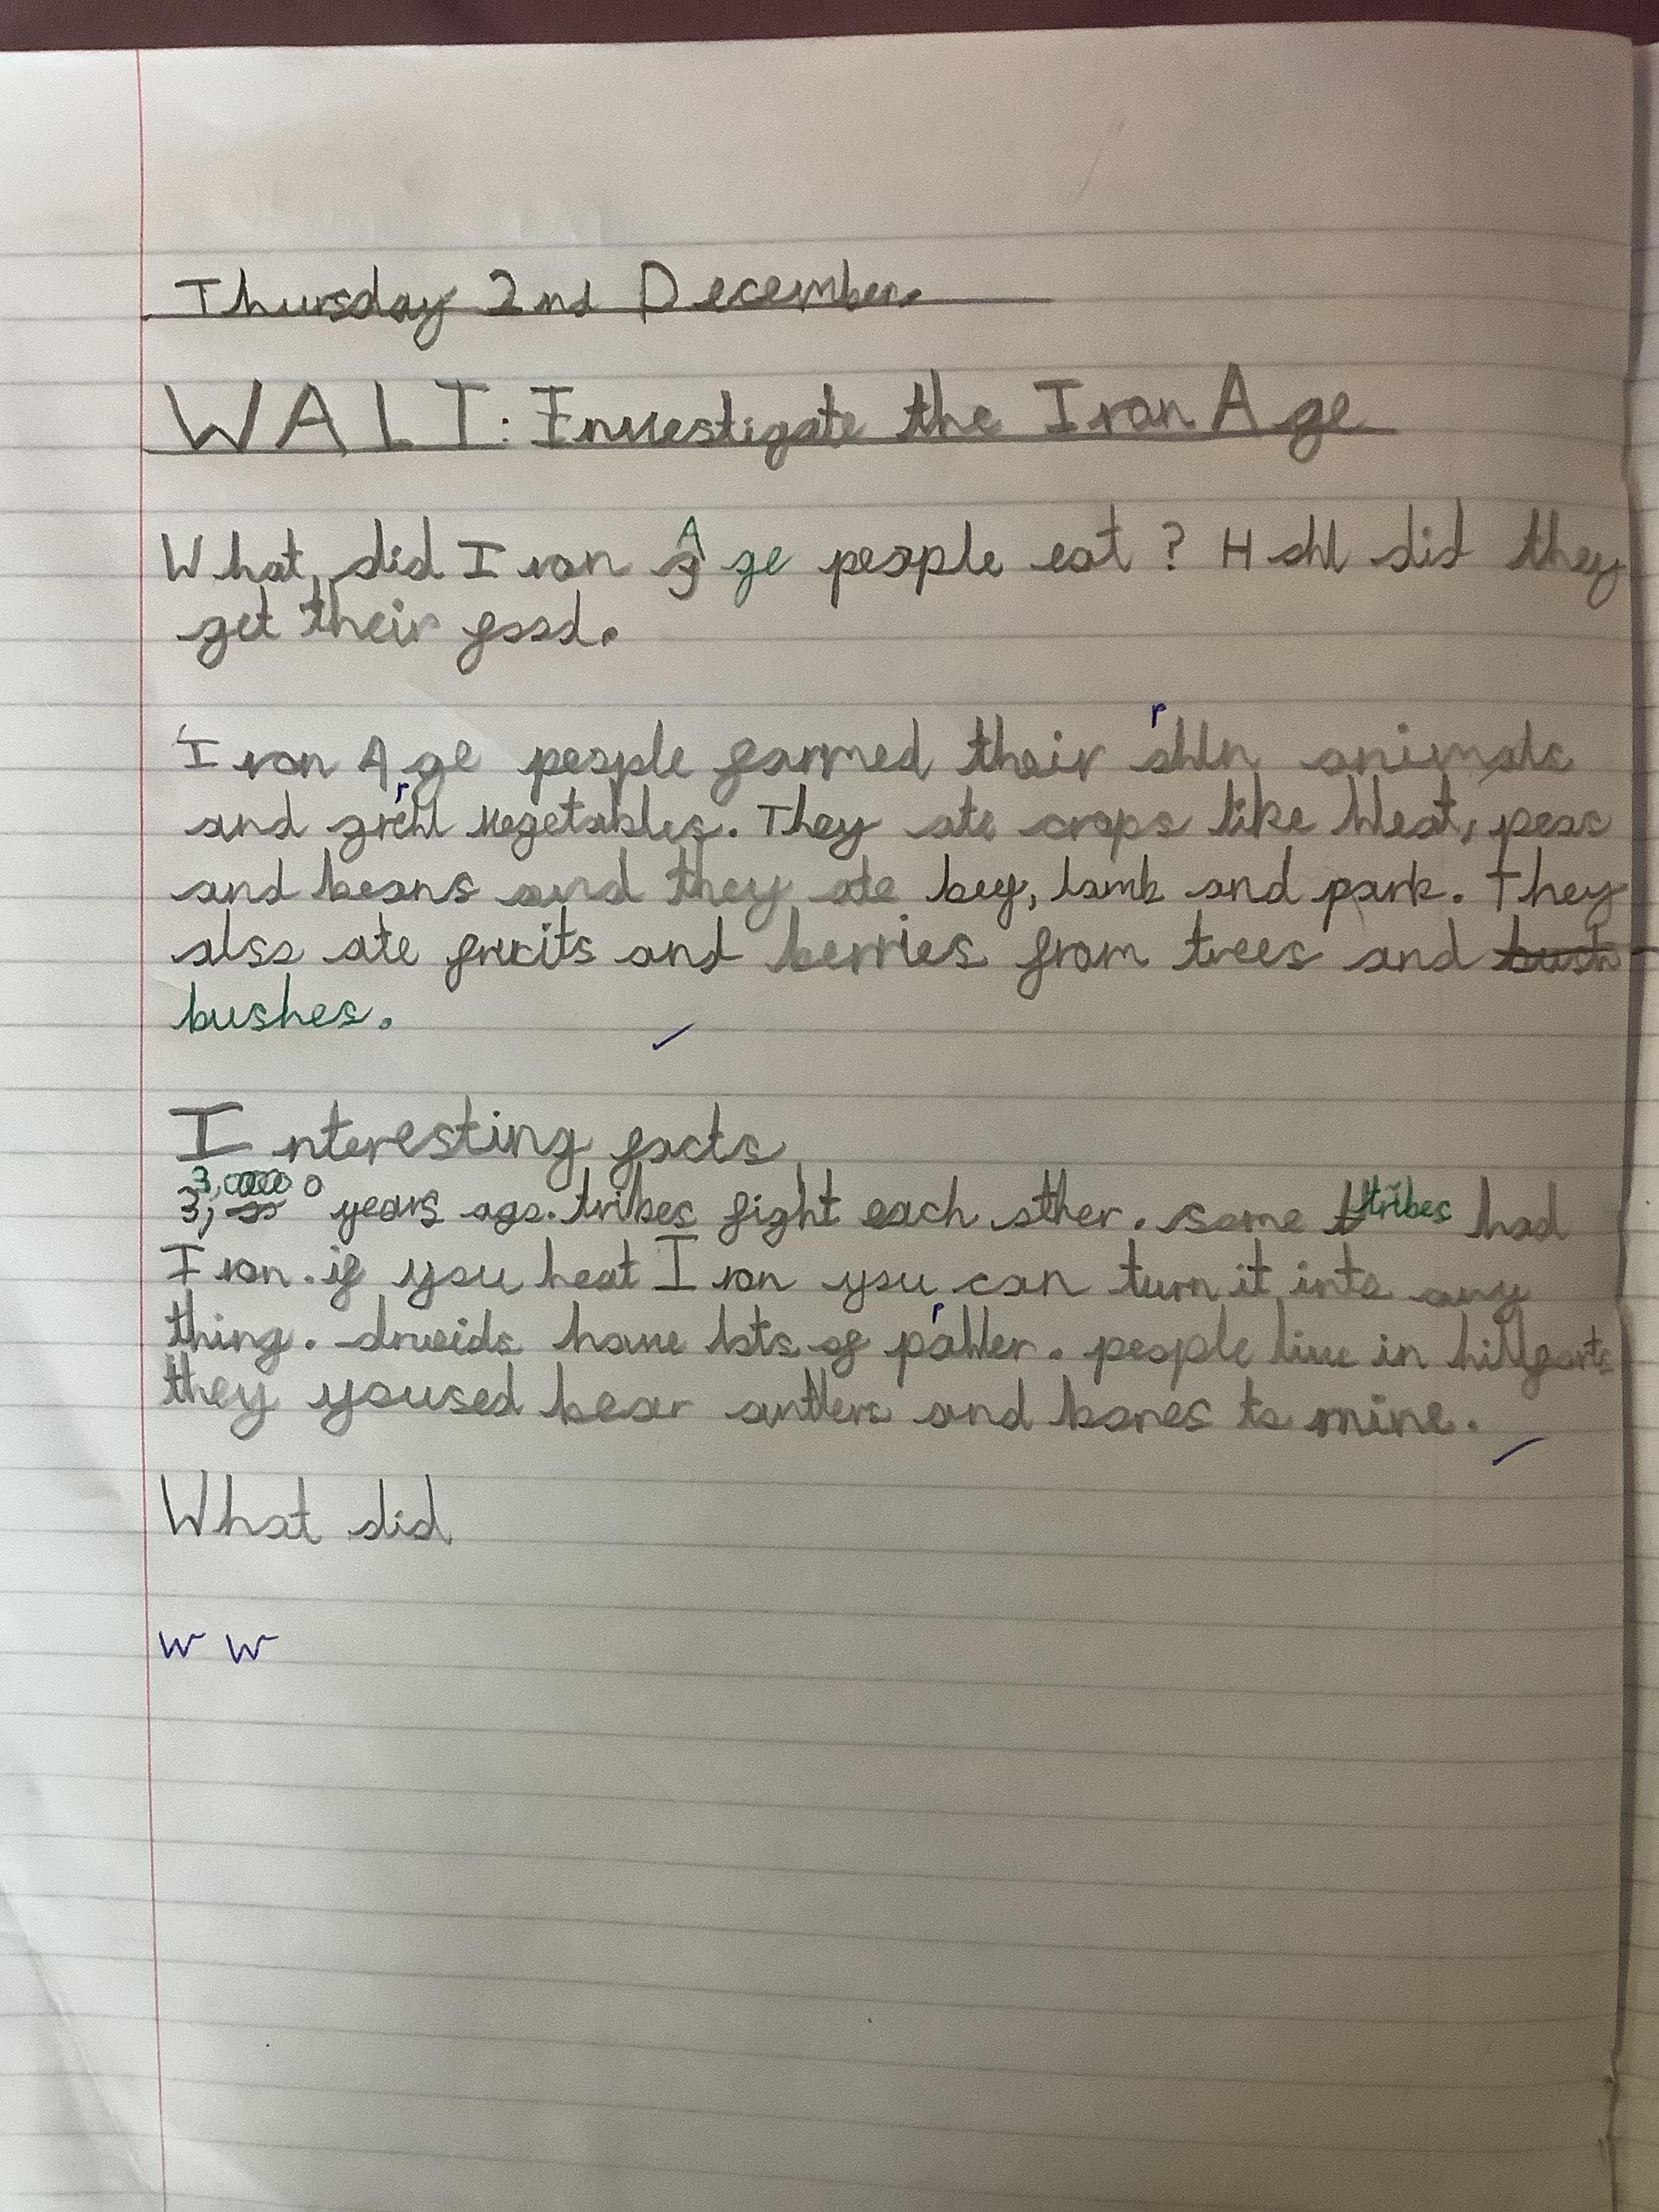 Thursday 2nd December.
WALT: Investigate the Iron Age
What did Iron Age people eat? How did they
get their food.
Iron Age people farmed their own animals
and grow vegetables. They ate crops like Weat, peas
and beans and they ate bef, lamb and pork. They
also ate fruits and berries from trees and bush
bushes.
Interesting facts
3,000 years ago. tribes fight each other. some tribes had
Iron. if you heat Iron you can turn it into any
thing. druids have lots of power. people live in hillforts
they youused bear antlers and bones to mine.
What did
w w